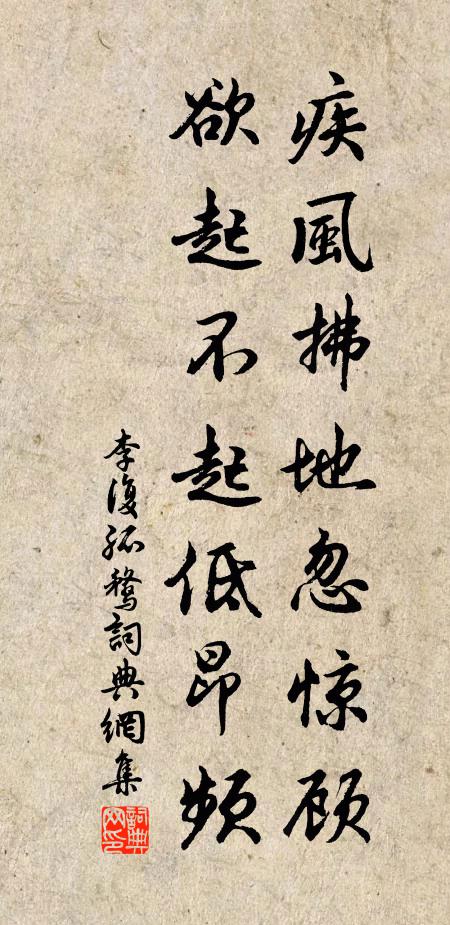 疾風拂地忽惊顾
欲起不起低昂频
李復孤鶩詞典網集
詞典網印